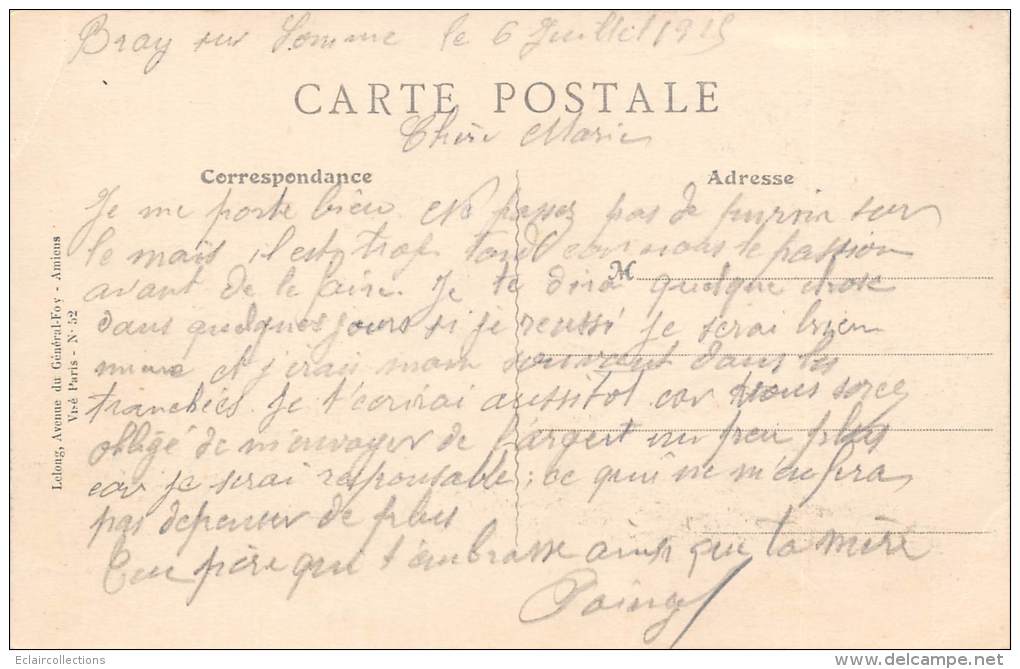 Bray sur Somme le 6 Juillet 1915
CARTE POSTALE
Chère Marie
Correspondance
Adresse
Je me porte bien et passez pas de purrin sur
le maïs il est trop tard car nous le passion
M
avant de le faire. Je te dira quelque chose
dans quelques jours si je reussi je serai bien
mieux et j'irais moin souvant dans les
tranchées. Je t'ecrirai aussitot car vous serez
obligé de m'envoyer de l'argent un peu plus
car je serai responsable; ce qui ne m'en fera
pas depenser de plus
Ton père qui t'embrasse ainsi que ta mère
Lelong, Avenue du Général-Foy - Amiens
Visé Paris - N° 52
Eclaircollections
www.delcampe.net